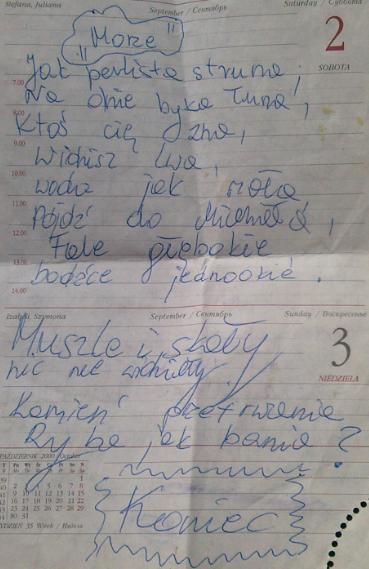 Stefana, Juliana
September / Сентябрь
Saturday / Суббота
2
SOBOTA
"Morze"
Jak perlista struna,
Na dnie byka Łuna,
Ktoś cię zna,
Widzisz lwa,
woda jak zioła
Pójdź do
Fale głębokie
bodźce jednookie.
7.00
9.00
10.00
11.00
12.00
13.00
14.00
Izabeli, Szymona
September / Сентябрь
Sunday / Воскресенье
3
NIEDZIELA
Muszle i skały
nic nie widziały
Kamień przetrwania
Ryba jak bania?
PAŹDZIERNIK 2000 October
Koniec
TYDZIEŃ 35 Week / Неделя